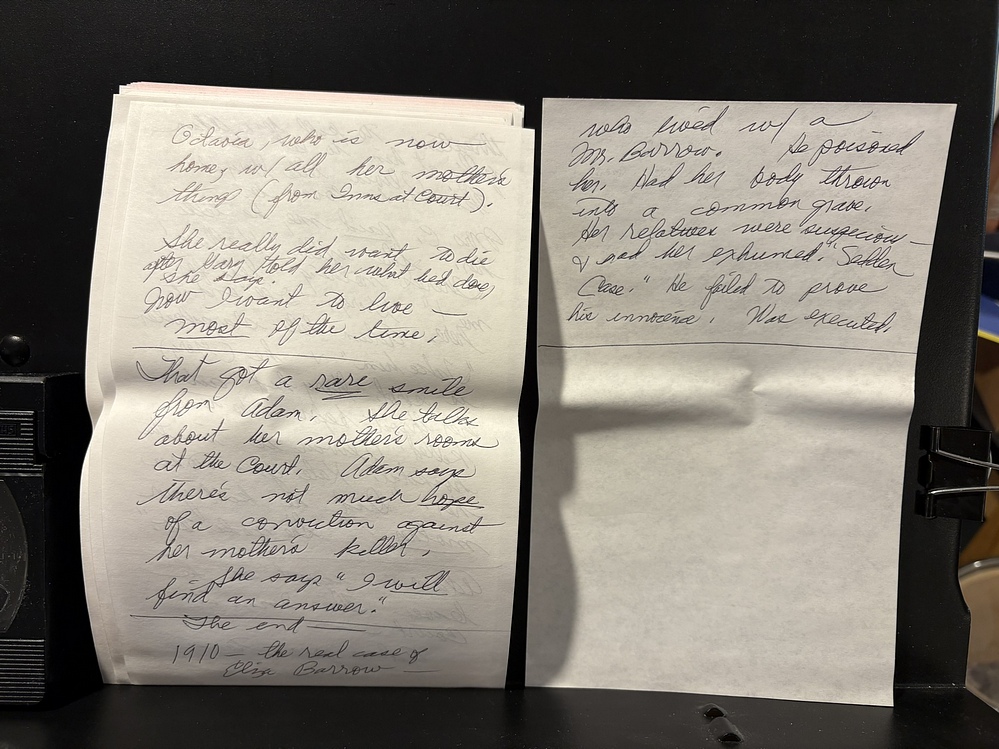 Octavia, who is now
home, w/ all her mother's
thing (from Inns at Court).
She really did want to die
after Mary told her what he'd done,
she says.
now I want to live —
most of the time.
That got a rare smile
from Adam. She talks
about her mother's rooms
at the Court. Adam says
there's not much hope
of a conviction against
her mother's killer.
She says "I will
find an answer."
The end —
1910 — the real case of
Eliza Barrow —
who lived w/ a
Mr. Barrow. He poisoned
her. Had her body thrown
into a common grave.
Her relatives were suspicious —
& had her exhumed. "Seddon
Case." He failed to prove
his innocence. Was executed.